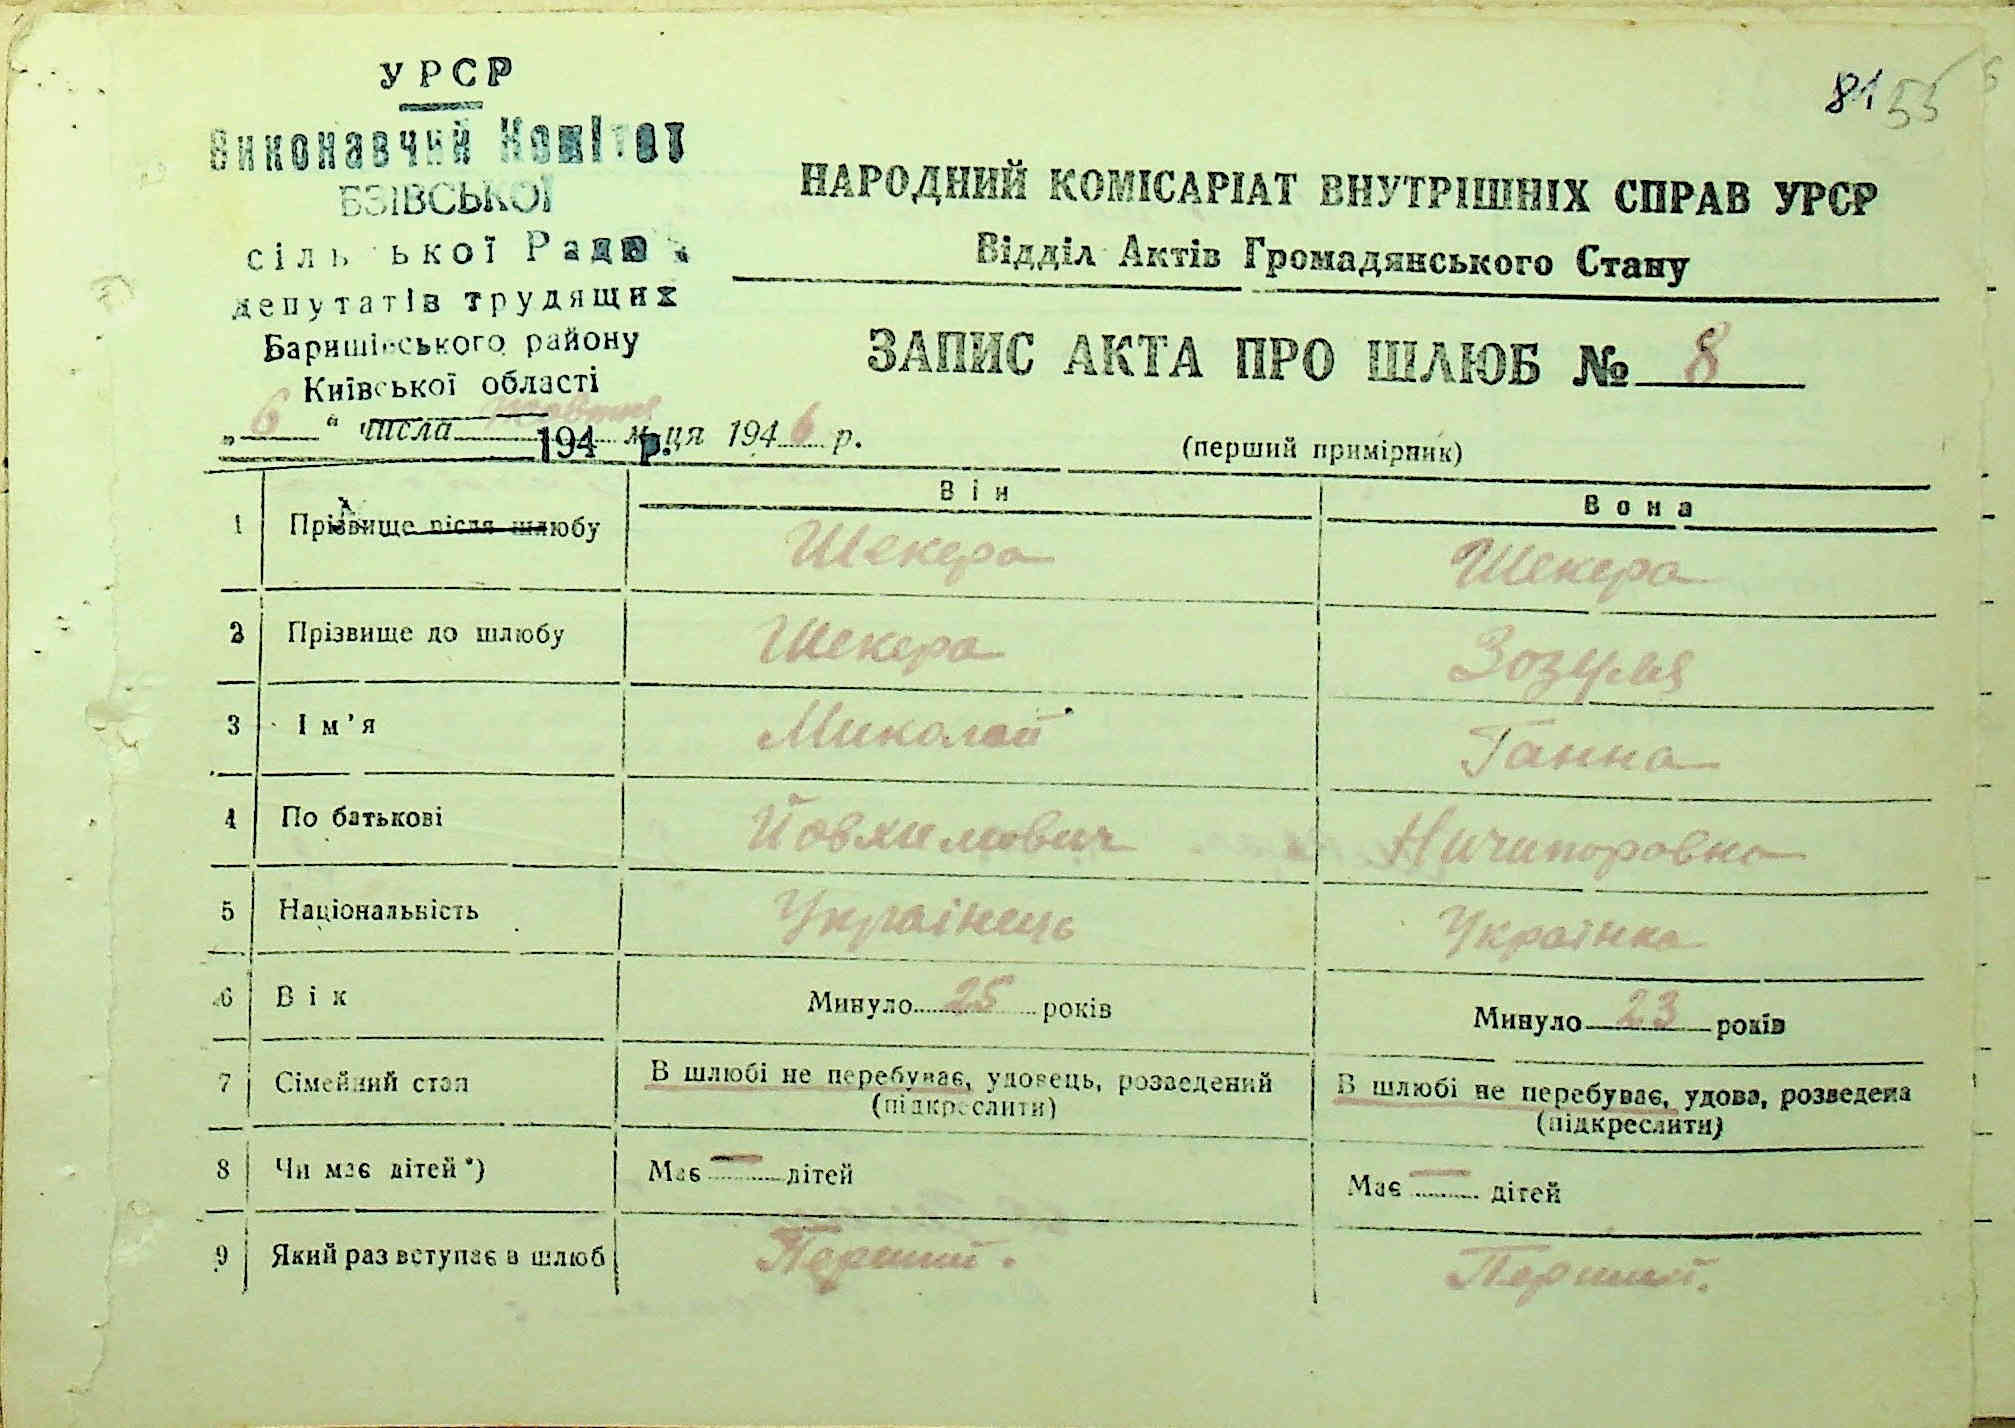 УРСР
Виконавчий Комітет
БЗІВСЬКОЇ
сільської Ради
депутатів трудящих
Баришівського району
Київської області
194 р.
81 55
НАРОДНИЙ КОМІСАРІАТ ВНУТРІШНІХ СПРАВ УРСР
Відділ Актів Громадянського Стану
ЗАПИС АКТА ПРО ШЛЮБ № 8
„ 6 “ числа жовтня м-ця 1946 р.
(перший примірник)
Він Вона
1 Прізвище після шлюбу Шекера Шекера
2 Прізвище до шлюбу Шекера Зозуля
3 Ім’я Миколай Ганна
4 По батькові Йовхимович Ничипоровна
5 Національність Українець Українка
6 Вік Минуло 25 років Минуло 23 років
7 Сімейний стан В шлюбі не перебуває, удовець, розведений (підкреслити) В шлюбі не перебуває, удова, розведена (підкреслити)
8 Чи має дітей*) Має — дітей Має — дітей
9 Який раз вступає в шлюб Перший. Перший.